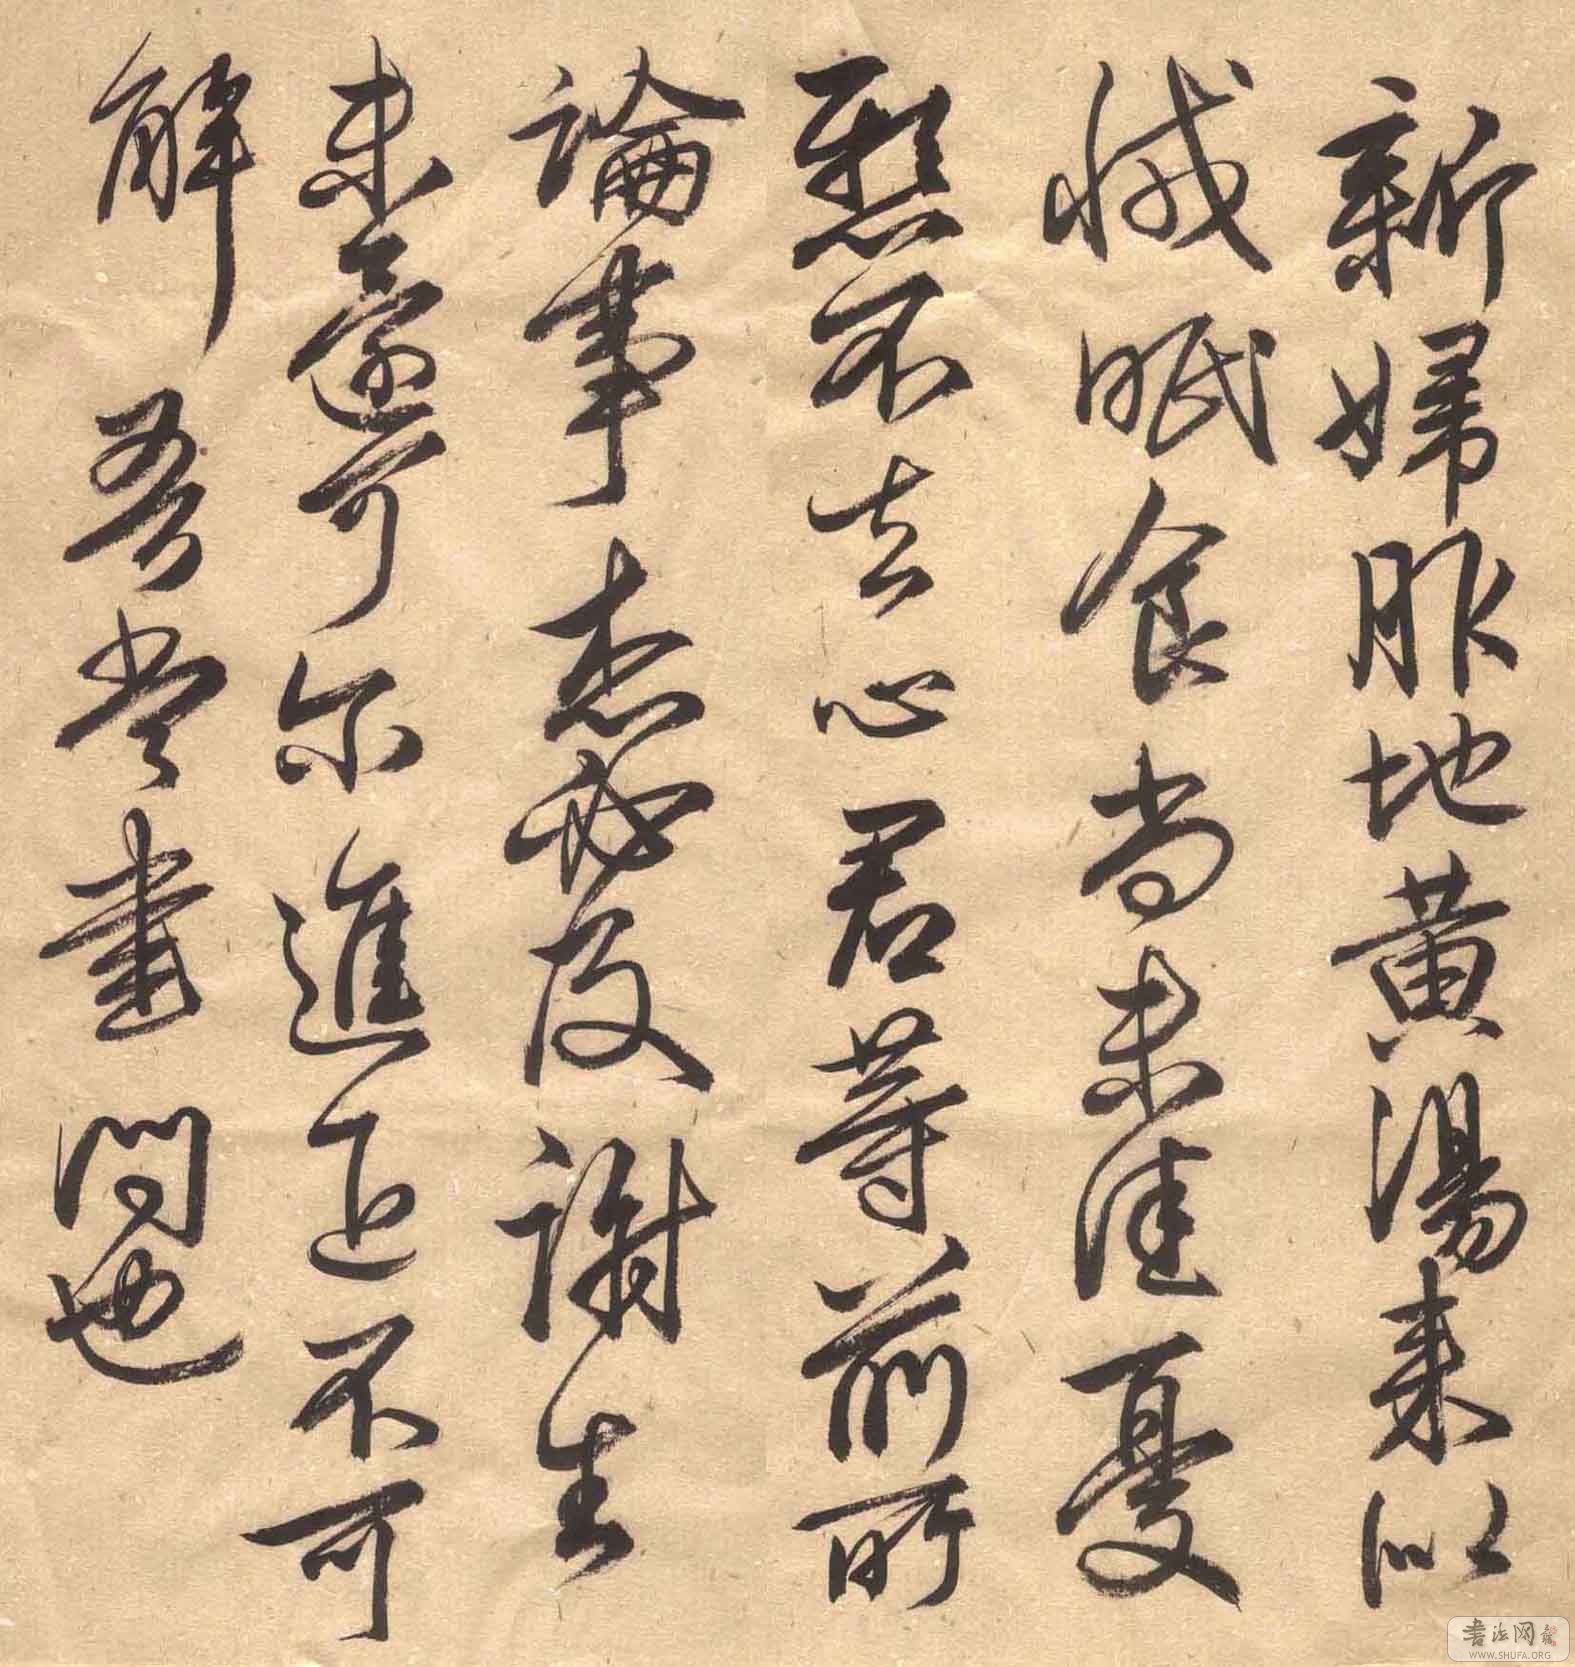 新婦服地黃湯來似
減眠食尚未佳憂
懸不去心君等前所
論事想必及謝生
未還可尔進退不可
解吾當書問也
書法网
WWW.SHUFA.ORG